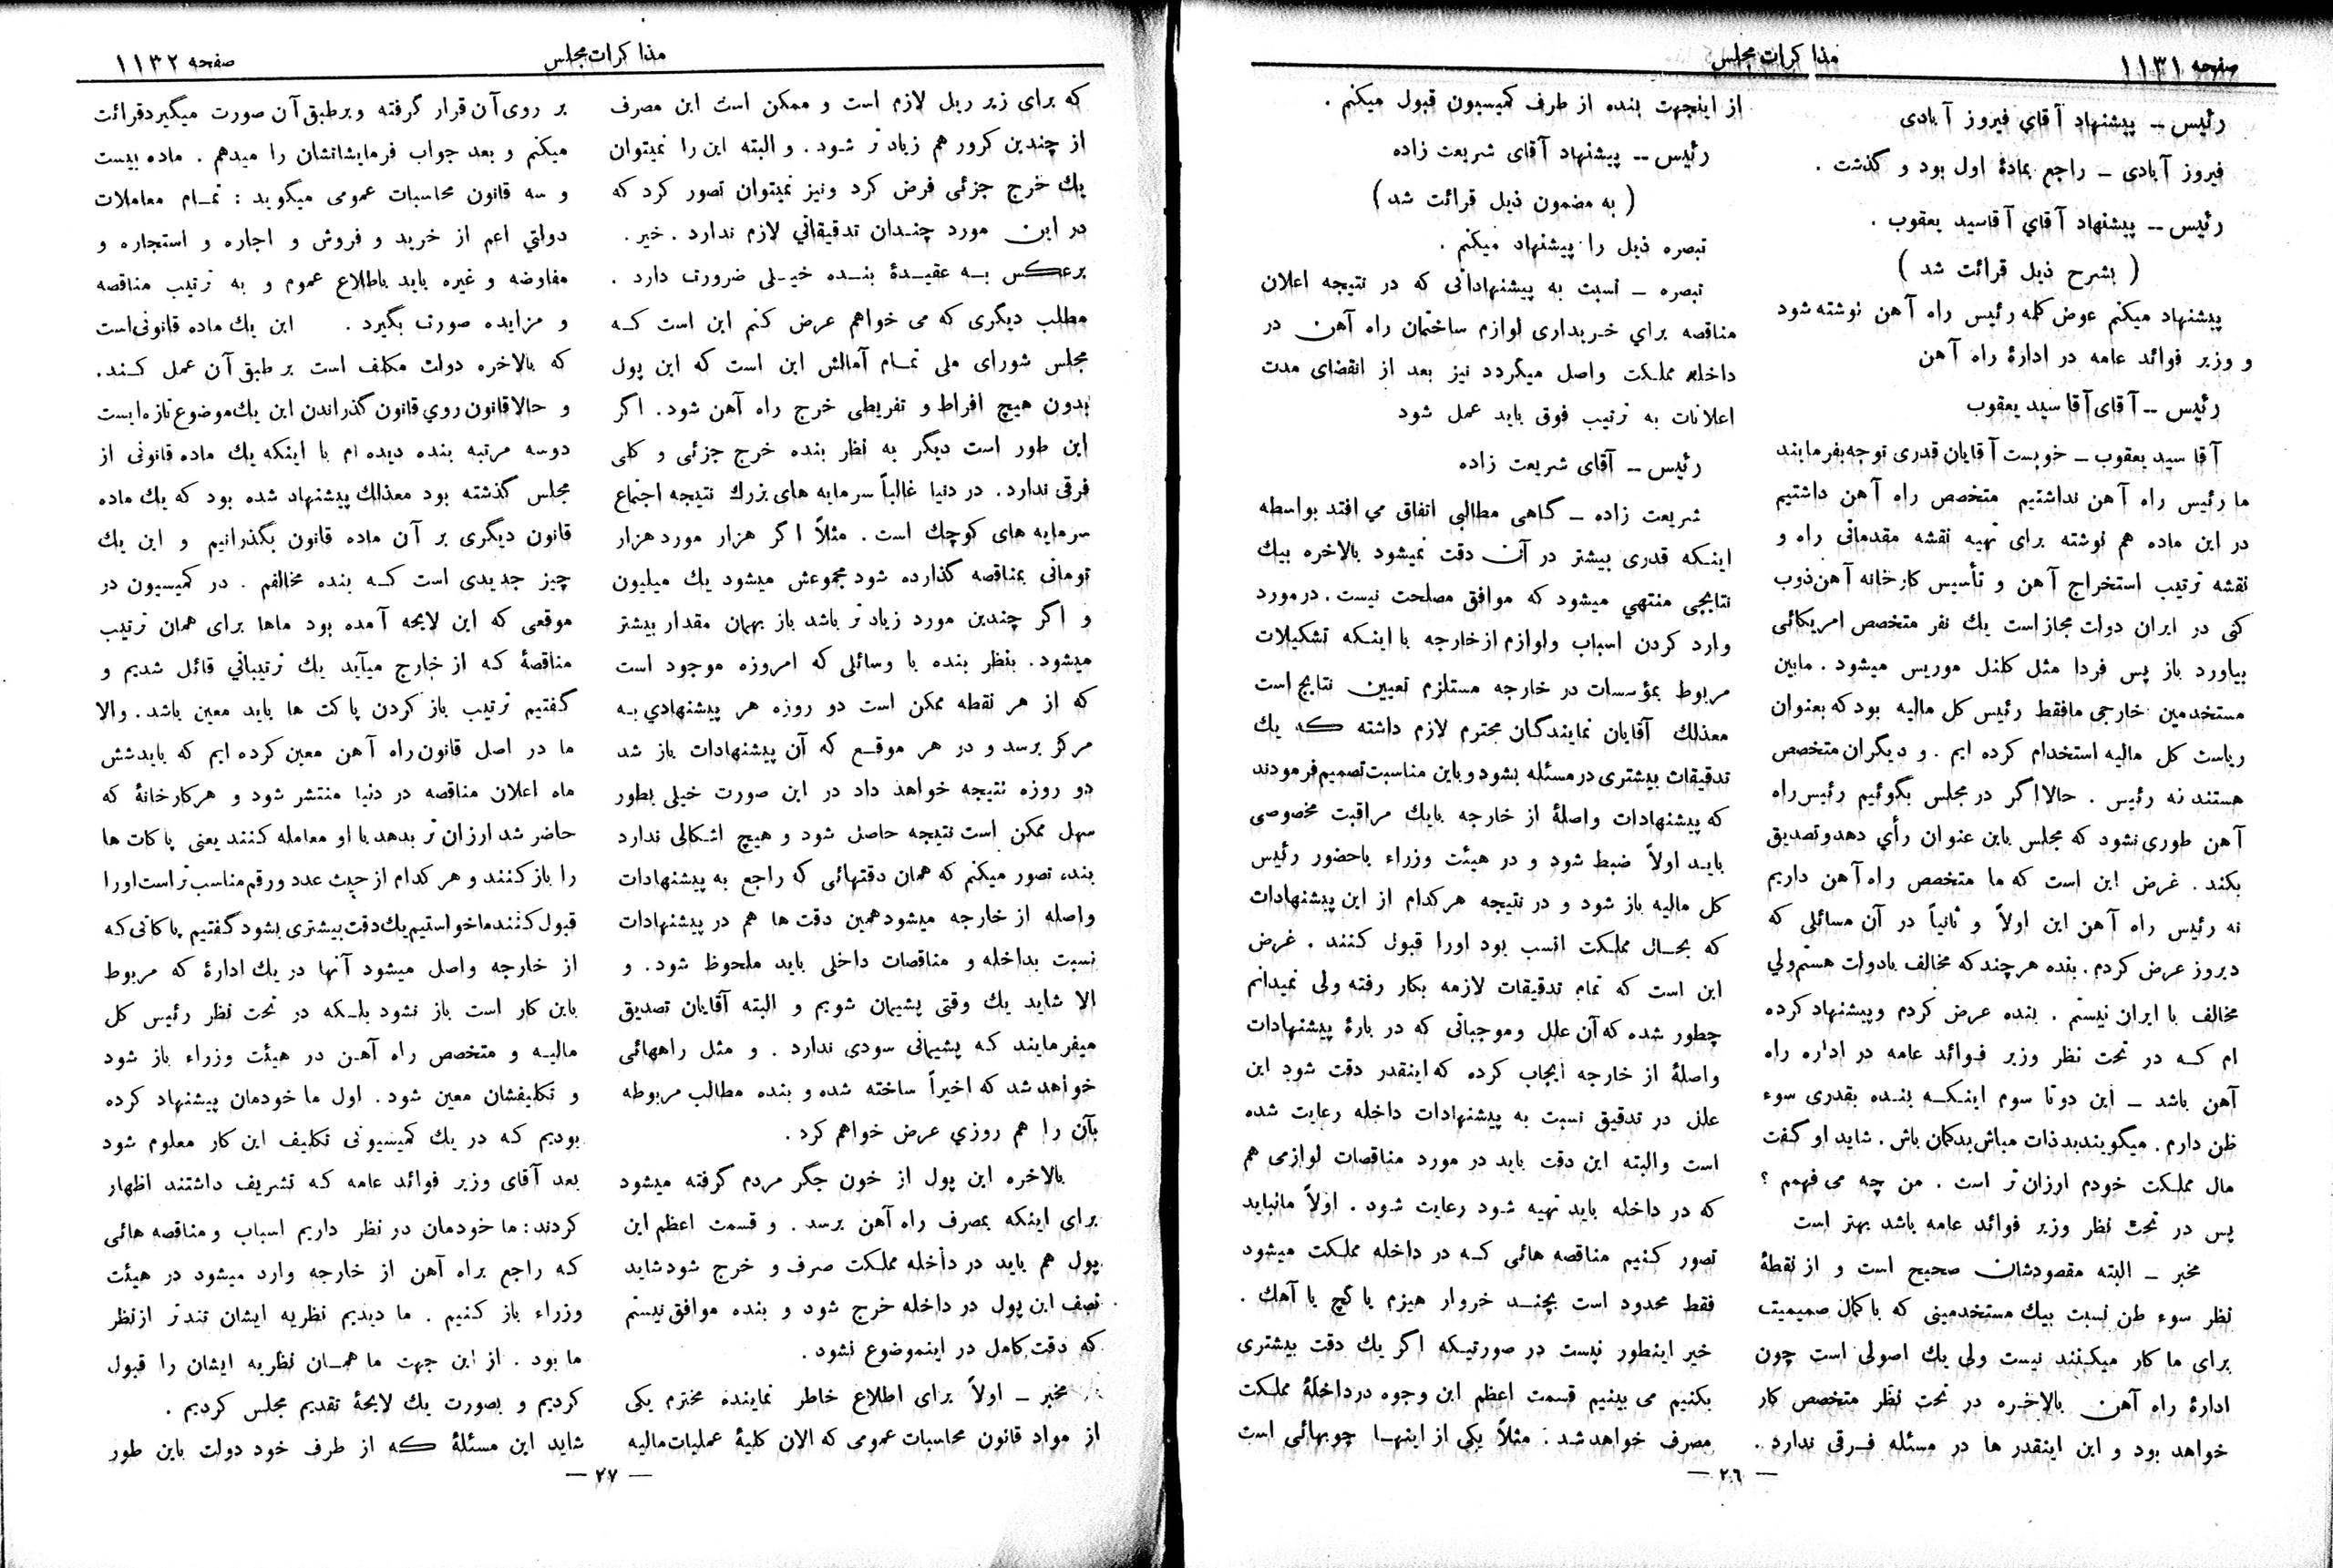 صفحه ۱۱۳۱
مذاکرات مجلس
رئیس – پیشنهاد آقای فیروز آبادی
فیروز آبادی – راجع بمادهٔ اول بود و گذشت .
رئیس – پیشنهاد آقای آقاسید یعقوب .
( بشرح ذیل قرائت شد )
پیشنهاد میکنم عوض کلمه رئیس راه آهن نوشته شود
و وزیر فوائد عامه در ادارهٔ راه آهن
رئیس – آقای آقا سید یعقوب
آقا سید یعقوب – خوبست آقایان قدری توجه بفرمایند
ما رئیس راه آهن نداشتیم متخصص راه آهن داشتیم
در این ماده هم نوشته برای تهیه نقشه مقدماتی راه و
نقشه ترتیب استخراج آهن و تأسیس کارخانه آهن ذوب
کنی در ایران دولت مجاز است یك نفر متخصص امریکائی
بیاورد باز پس فردا مثل کلنل موریس میشود . مابین
مستخدمین خارجی مافقط رئیس کل مالیه بود که بعنوان
ریاست کل مالیه استخدام کرده ایم . و دیگران متخصص
هستند نه رئیس . حالا اگر در مجلس بگوئیم رئیس راه
آهن طوری نشود که مجلس باین عنوان رأي دهد و تصدیق
بکند . غرض این است که ما متخصص راه آهن داریم
نه رئیس راه آهن این اولاً و ثانیاً در آن مسائلی که
دیروز عرض کردم . بنده هر چند که مخالف بادولت هستم ولي
مخالف با ایران نیستم . بنده عرض کردم و پیشنهاد کرده
ام کـه در تحت نظر وزیر فـوائد عامه در اداره راه
آهن باشد – این دوتا سوم اینـکـه بنـده بقدری سوء
ظن دارم . میگویند بد ذات مباش بدگمان باش . شاید او گفت
مال مملکت خودم ارزان تر است . من چه می فهمم ؟
پس در تحت نظر وزیر فوائد عامه باشد بهتر است
مخبر – البته مقصودشان صحیح است و از نقطهٔ
نظر سوء ظن نسبت بیك مستخدمینی که با کمال صمیمیت
برای ما کار میکنند نیست ولی یك اصولی است چون
ادارهٔ راه آهن بالاخـره در تحت نظر متخصص کار
خواهد بود و این اینقدر ها در مسئله فـرقی ندارد .
از اینجهت بنده از طرف کمیسیون قبول میکنم .
رئیس – پیشنهاد آقای شریعت زاده
( به مضمون ذیل قرائت شد )
تبصره ذیل را پیشنهاد میکنم .
تبصره – نسبت به پیشنهاداتی که در نتیجه اعلان
مناقصه براي خـریداری لوازم ساختمان راه آهن در
داخله مملکت واصل میگردد نیز بعد از انقضای مدت
اعلانات به ترتیب فوق باید عمل شود
رئیس – آقای شریعت زاده
شریعت زاده – گاهی مطالبی اتفاق می افتد بواسطه
اینـکه قدری بیشتر در آن دقت نمیشود بالاخره بیك
نتایجی منتهي میشود که موافق مصلحت نیست . در مورد
وارد کردن اسباب ولوازم از خارجه با اینـکه تشکیلات
مربوط بمؤسسات در خارجه مستلزم تعیین نتایج است
معذلك آقایان نمایندگان محترم لازم داشته کـه یك
تدقیقات بیشتری در مسئله بشود و باین مناسبت تصمیم فرمودند
که پیشنهادات واصلهٔ از خارجه بایك مراقبت مخصوصی
بایـد اولاً ضبط شود و در هیئت وزراء باحضور رئیس
کل مالیه باز شود و در نتیجه هرکدام از این پیشنهادات
که بحـال مملکت انسب بود اورا قبول کنند . غرض
این است که تمام تدقیقات لازمه بکار رفته ولی نمیدانم
چطور شده که آن علل وموجباتی که در بارهٔ پیشنهادات
واصلهٔ از خارجه ایجاب کرده که اینقدر دقت شود این
علل در تدقیق نسبت به پیشنهادات داخله رعایت شده
است والبته این دقت باید در مورد مناقصات لوازمی هم
که در داخله باید تهیه شود رعایت شود . اولاً مانباید
تصور کنیم مناقصه هائی کـه در داخله مملکت میشود
فقط محدود است بچنـد خروار هیزم یا گچ یا آهك .
خیر اینطور نیست در صورتیکه اگر یك دقت بیشتری
بکنیم می بینیم قسمت اعظم این وجوه در داخلهٔ مملکت
مصرف خواهد شد . مثلاً یکی از اینهـا چوبهائی است
— ۲۶ —
مذاکرات مجلس
صفحه ۱۱۳۲
که برای زیر ریل لازم است و ممکن است این مصرف
از چندین کرور هم زیاد تر شود . و البته این را نمیتوان
یك خرج جزئی فرض کرد ونیز نمیتوان تصور کرد که
در این مورد چنـدان تدقیقاتي لازم ندارد . خیر .
برعکس بـه عقیـدهٔ بنـده خیـلی ضرورت دارد .
مطلب دیگری که می خواهم عرض کنم این است کـه
مجلس شورای ملی تمـام آمالش این است که این پول
بدون هیچ افراط و تفریطی خرج راه آهن شود . اگر
این طور است دیگر به نظر بنده خرج جزئی و کلی
فرقی ندارد . در دنیا غالباً سرمایه های بزرك نتیجه اجتماع
سرمایه های کوچك است . مثلاً اگر هزار مورد هزار
تومانی بمناقصه گذارده شود مجموعش میشود یك میلیون
و اگر چندین مورد زیاد تر باشد باز بهمان مقدار بیشتر
میشود . بنظر بنده با وسائلی که امروزه موجود است
که از هر نقطه ممکن است دو روزه هر پیشنهادي بـه
مرکز برسد و در هر موقـع که آن پیشنهادات باز شد
دو روزه نتیجه خواهد داد در این صورت خیلی بطور
سهل ممکن است نتیجه حاصل شود و هیچ اشکالی ندارد
بنده تصور میکنم که همان دقتهائی که راجع به پیشنهادات
واصله از خارجه میشود همین دقت ها هم در پیشنهادات
نسبت بداخله و مناقصات داخلی باید ملحوظ شود . و
الا شاید یك وقتی پشیمان شویم و البته آقایان تصدیق
میفرمایند کـه پشیمانی سودی ندارد . و مثل راههائی
خواهد شد که اخیراً ساخته شده و بنده مطالب مربوطه
بآن را هم روزي عرض خواهم کرد .
بالاخره این پول از خون جگر مردم گرفته میشود
برای اینکه بمصرف راه آهن برسد . و قسمت اعظم این
پول هم باید در داخله مملکت صرف و خرج شود شاید
نصف این پول در داخله خرج شود و بنده موافق نیستم
که دقت کامل در اینموضوع نشود .
مخبر – اولاً برای اطلاع خاطر نماینده محترم یکی
از مواد قانون محاسبات عمومی که الان کلیهٔ عملیات مالیه
بر روی آن قرار گرفته و برطبق آن صورت میگیرد قرائت
میکنم و بعد جواب فرمایشاتشان را میدهم . ماده بیست
و سه قانون محاسبات عمومی میگوید : تمـام معاملات
دولتي اعم از خرید و فروش و اجاره و استجاره و
مفاوضه و غیره باید باطلاع عموم و به ترتیب مناقصه
و مزایده صورت بگیرد . این یك ماده قانونی است
که بالاخره دولت مکلف است بر طبق آن عمل کـند .
و حالا قانون روي قانون گذراندن این یك موضوع تازه ایست
دوسه مرتبه بنده دیده ام با اینکه یك ماده قانونی از
مجلس گذشته بود معذلك پیشنهاد شده بود که یك ماده
قانون دیگری بر آن ماده قانون بگذرانیم و این یك
چیز جدیدی است کـه بنده مخالفم . در کمیسیون در
موقعی که این لایحه آمده بود ماها برای همان ترتیب
مناقصهٔ کـه از خارج میآید یك ترتیباتي قائل شدیم و
گفتیم ترتیب باز کردن پاکت ها باید معین باشد . والا
ما در اصل قانون راه آهن معین کرده ایم که باید شش
ماه اعلان مناقصه در دنیا منتشر شود و هرکارخانهٔ که
حاضر شد ارزان تر بدهد با او معامله کـنند یعنی پاکات ها
را باز کنند و هر کدام از حیث عدد و رقم مناسب تر است اورا
قبول کنند ما خواستیم یك دقت بیشتری بشود گفتیم پاکاتی کـه
از خارجه واصل میشود آنها در یك ادارهٔ که مربوط
باین کار است باز نشود بلـکه در تحت نظر رئیس کل
مالیـه و متخصص راه آهـن در هیئت وزراء باز شود
و تکلیفشان معین شود . اول ما خودمان پیشنهاد کرده
بودیم کـه در یك کمیسیونی تکلیف این کار معلوم شود
بعد آقای وزیر فوائد عامه کـه تشریف داشتند اظهار
کردند : ما خودمان در نظر داریم اسباب و مناقصه هائی
کـه راجع براه آهن از خارجه وارد میشود در هیئت
وزراء باز کـنیم . ما دیدیم نظریه ایشان تندتر از نظر
ما بود . از این جهت ما همـان نظریه ایشان را قبول
کردیم و بصورت یك لایحهٔ تقدیم مجلس کردیم .
شاید این مسئلهٔ کـه از طرف خود دولت باین طور
— ۲۷ —